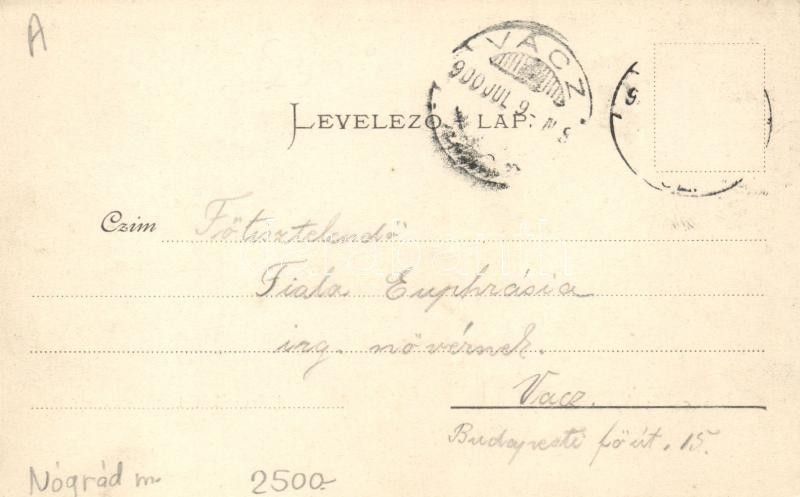 A
VÁCZ
900 JUL 9
LEVELEZŐ-LAP.
Czim Főtisztelendő
Fiala Euphrásia
irg. nővérnek.
Vacz.
Budapesti főút. 15.
Nógrád m. 2500-